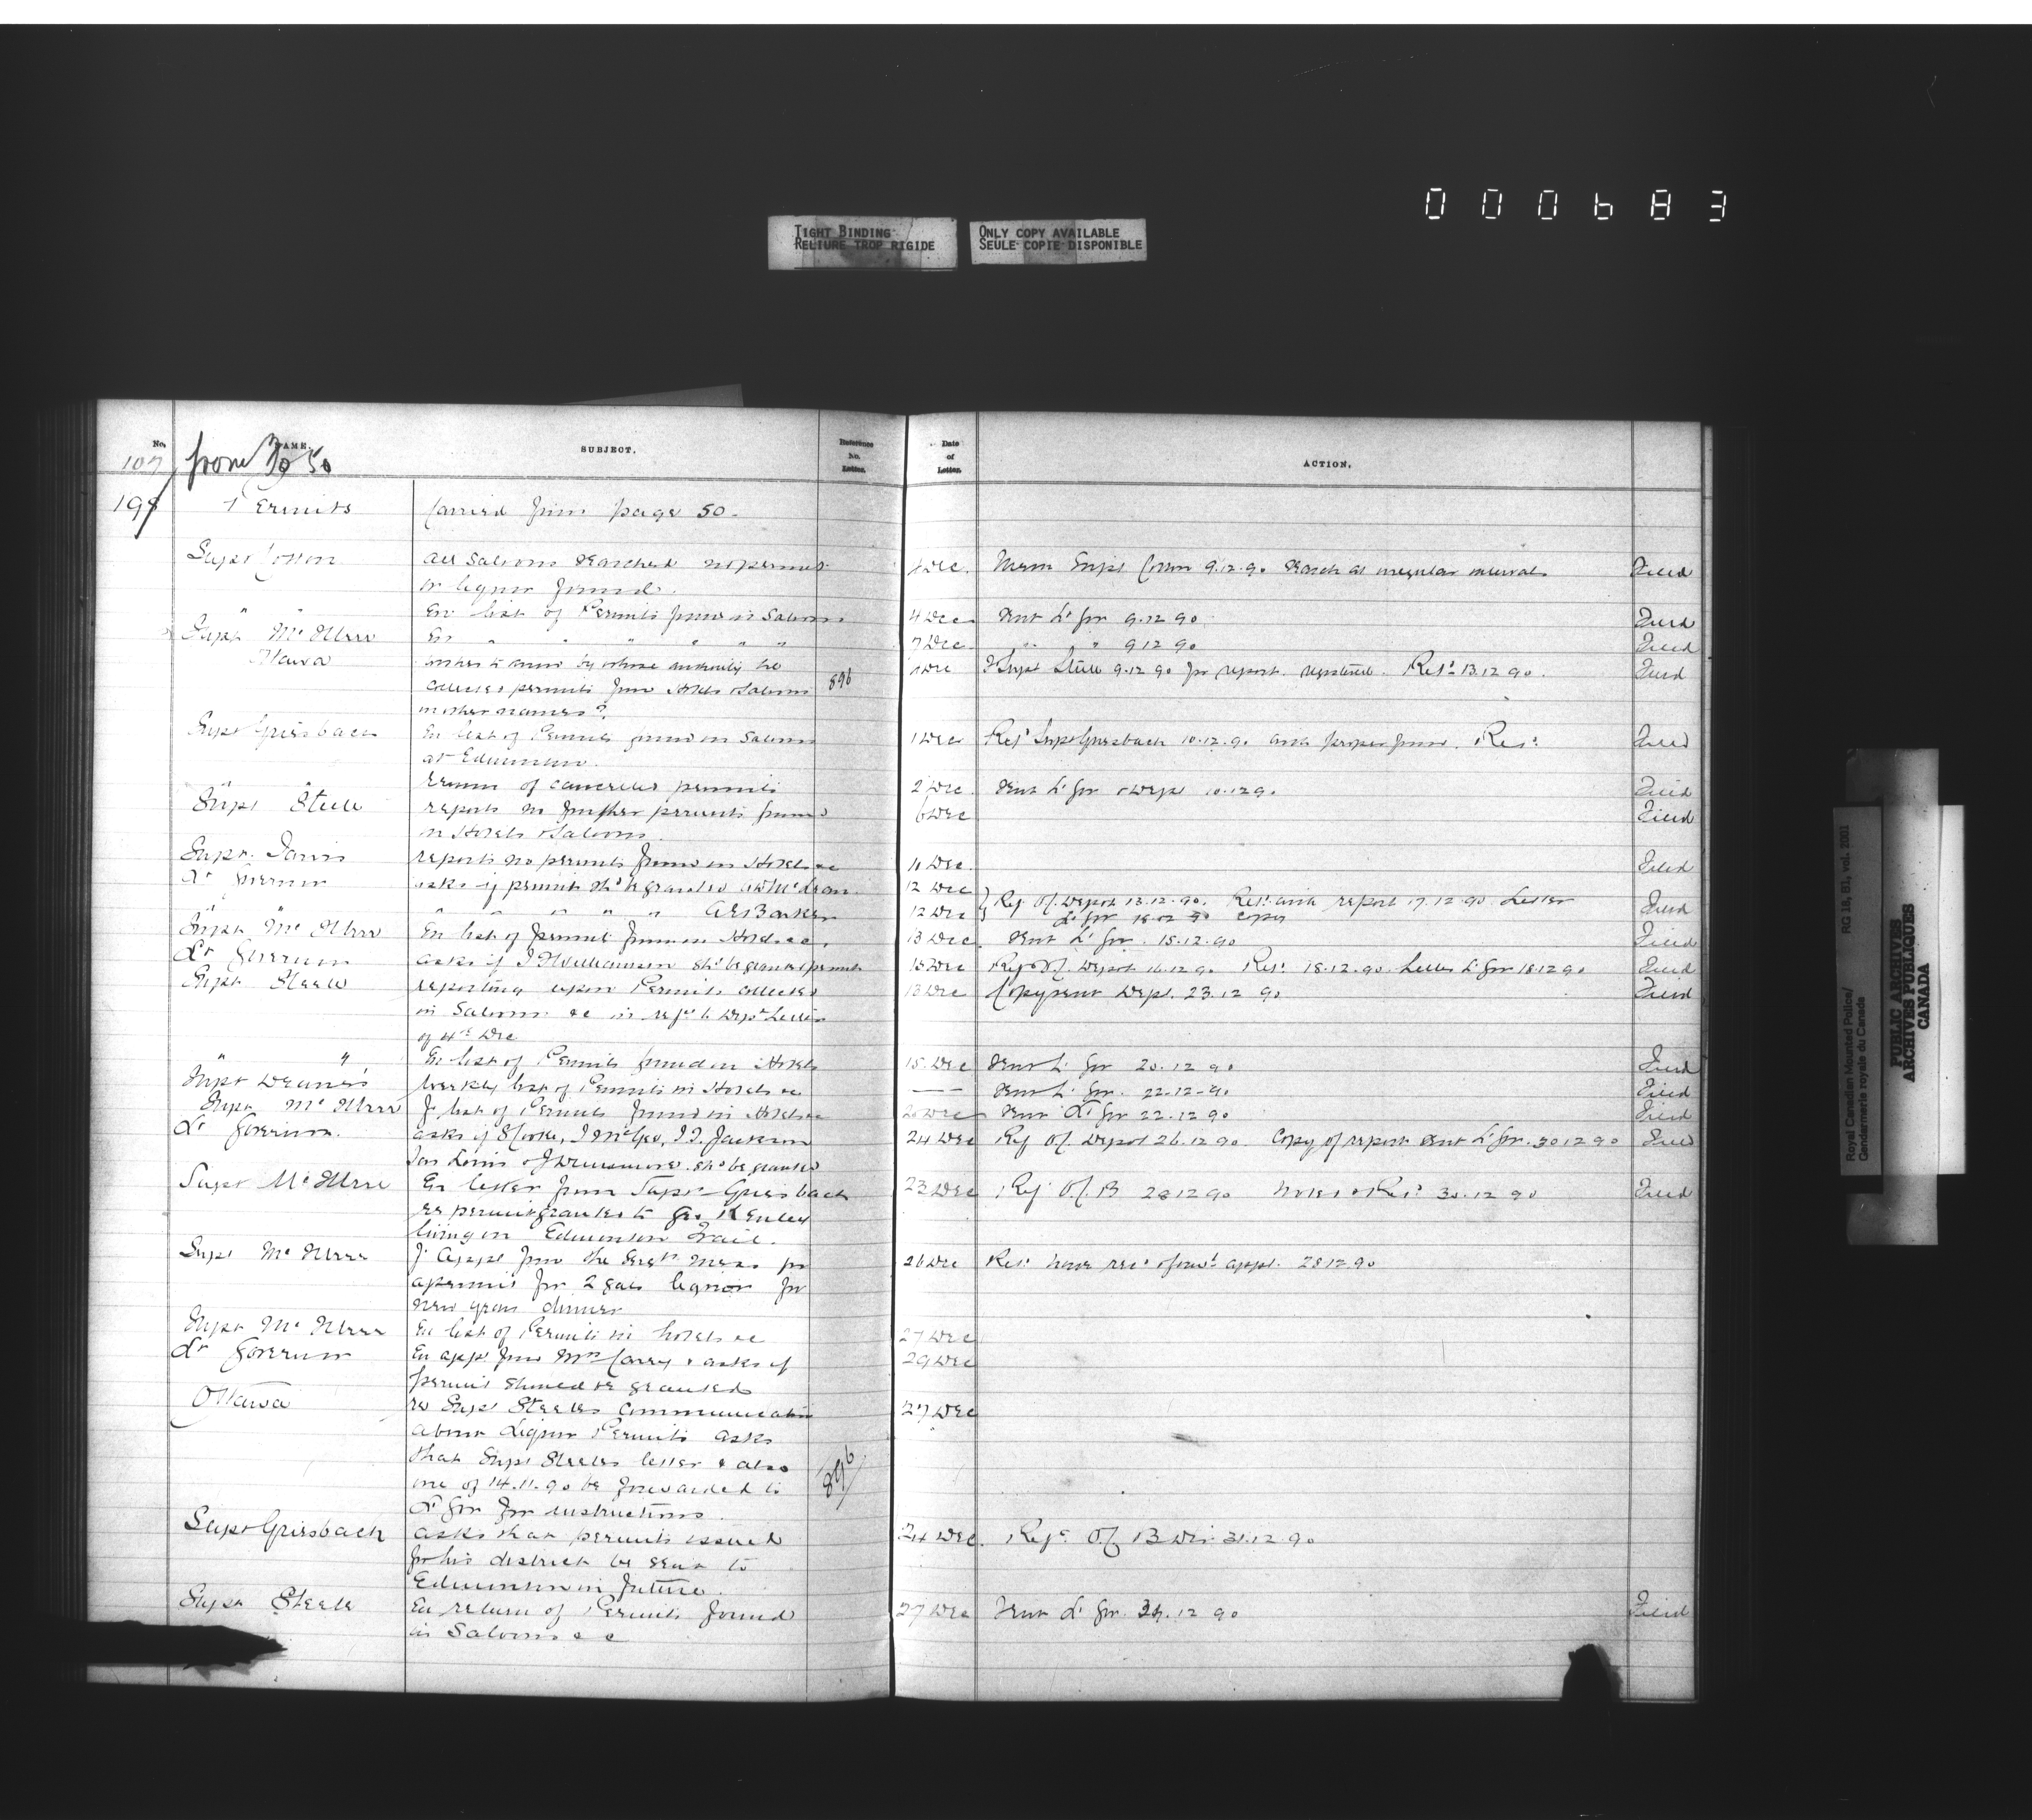 000683
TIGHT BINDING
RELIURE TROP RIGIDE
ONLY COPY AVAILABLE
SEULE COPIE DISPONIBLE
No. NAME. SUBJECT. Reference No. Letter. Date of Letter. ACTION.
107 from 50
198 Permits Carried from page 50.
Supt Cotton All Saloons searched no permits 4 Dec. Memo Supt Cotton 9.12.90 Search at irregular intervals Filed
or liquor found.
" " En list of Permits found in Saloons. 4 Dec Sent Lt Gov 9.12 90 Filed
Supt McIllree En " " " " " " 7 Dec " " " 9 12 90 Filed
Ottawa wishes to know by whose authority he Dec Supt Steele 9.12 90 for report. registered. Retd 13.12 90. Filed
collects permits from Hotels & Saloons 896
in other names?
Supt Griesbach En list of Permits found in Saloons 1 Dec Refd Supt Griesbach 10.12.90 Retd. Filed
at Edmonton.
" " return of cancelled permits 2 Dec Sent Lt Gov & Dept 10.12 90. Filed
Supt Steele reports no further permits found 6 Dec Filed
in Hotels & Saloons.
Supt. Jarvis reports no permits found in Hotels &c 10 Dec. Filed
Lt Governor asks if permit shd be granted McLean 12 Dec
" " " " " " A E Barker 12 Dec Ref O.C. Depot 13.12.90. Retd with report 17.12 90 Letter Filed
Lt Gov 18.12 90 copy
Supt McIllree En list of permits found in Hotels &c. 13 Dec. Sent Lt Gov. 15.12.90 Filed
Lt Governor asks if J Williamson shd be granted permit 15 Dec Ref O.C. Depot 16.12 90. Retd 18.12.90. Letter Lt Gov 18.12 90 Filed
Supt Steele reporting upon Permits collected 13 Dec Copy sent Dept. 23.12 90 Filed
in Saloons &c in refce to Depts Letter
of 4th Dec
" " En list of Permits found in Hotels 15. Dec Sent Lt Gov 20.12 90 Filed
Supt Deane's Weekly list of Permits in Hotels &c — Sent Lt Gov. 22-12-90 Filed
Supt McIllree F. list of Permits found in Hotels &c 20 Dec Sent Lt Gov 22.12 90 Filed
Lt Governor. asks if S Cooke, J McGee, J.J. Jackson 24 Dec Ref O.C. Depot 26.12 90. Copy of report sent Lt Gov. 30 12 90 Filed
Jas Lewis & J Dunsmore. shd be granted
Supt McIllree En letter from Supt Griesbach 23 Dec Ref O.C. B 28 12 90 Noted & Retd 30.12 90 Filed
re permit granted to Geo
living on Edmonton Trail.
Supt McIllree F. Appl from the Sergts Mess for 26 Dec Retd have recd & fowd appl. 28.12.90
a permit for 2 gals liquor for
New years dinner
Supt McIllree En list of Permits in hotels &c 27 Dec
Lt Governor En appl from Mrs Carey & asks if 29 Dec
permit should be granted
Ottawa re Supt Steeles communication 27 Dec
about Liquor Permits asks
that Supt Steeles letter & also 896
one of 14.11.90 be forwarded to
Lt Gov for instructions.
Supt Griesbach asks that permits issued 24 Dec. Refd O.C. B Div 31.12 90
for his district be sent to
Edmonton in future.
Supt Steele En return of Permits found 27 Dec Sent Lt Gov. 12 90 Filed
in Saloons &c
Royal Canadian Mounted Police/ RG 18, B1, vol. 2001
Gendarmerie royale du Canada
PUBLIC ARCHIVES
ARCHIVES PUBLIQUES
CANADA